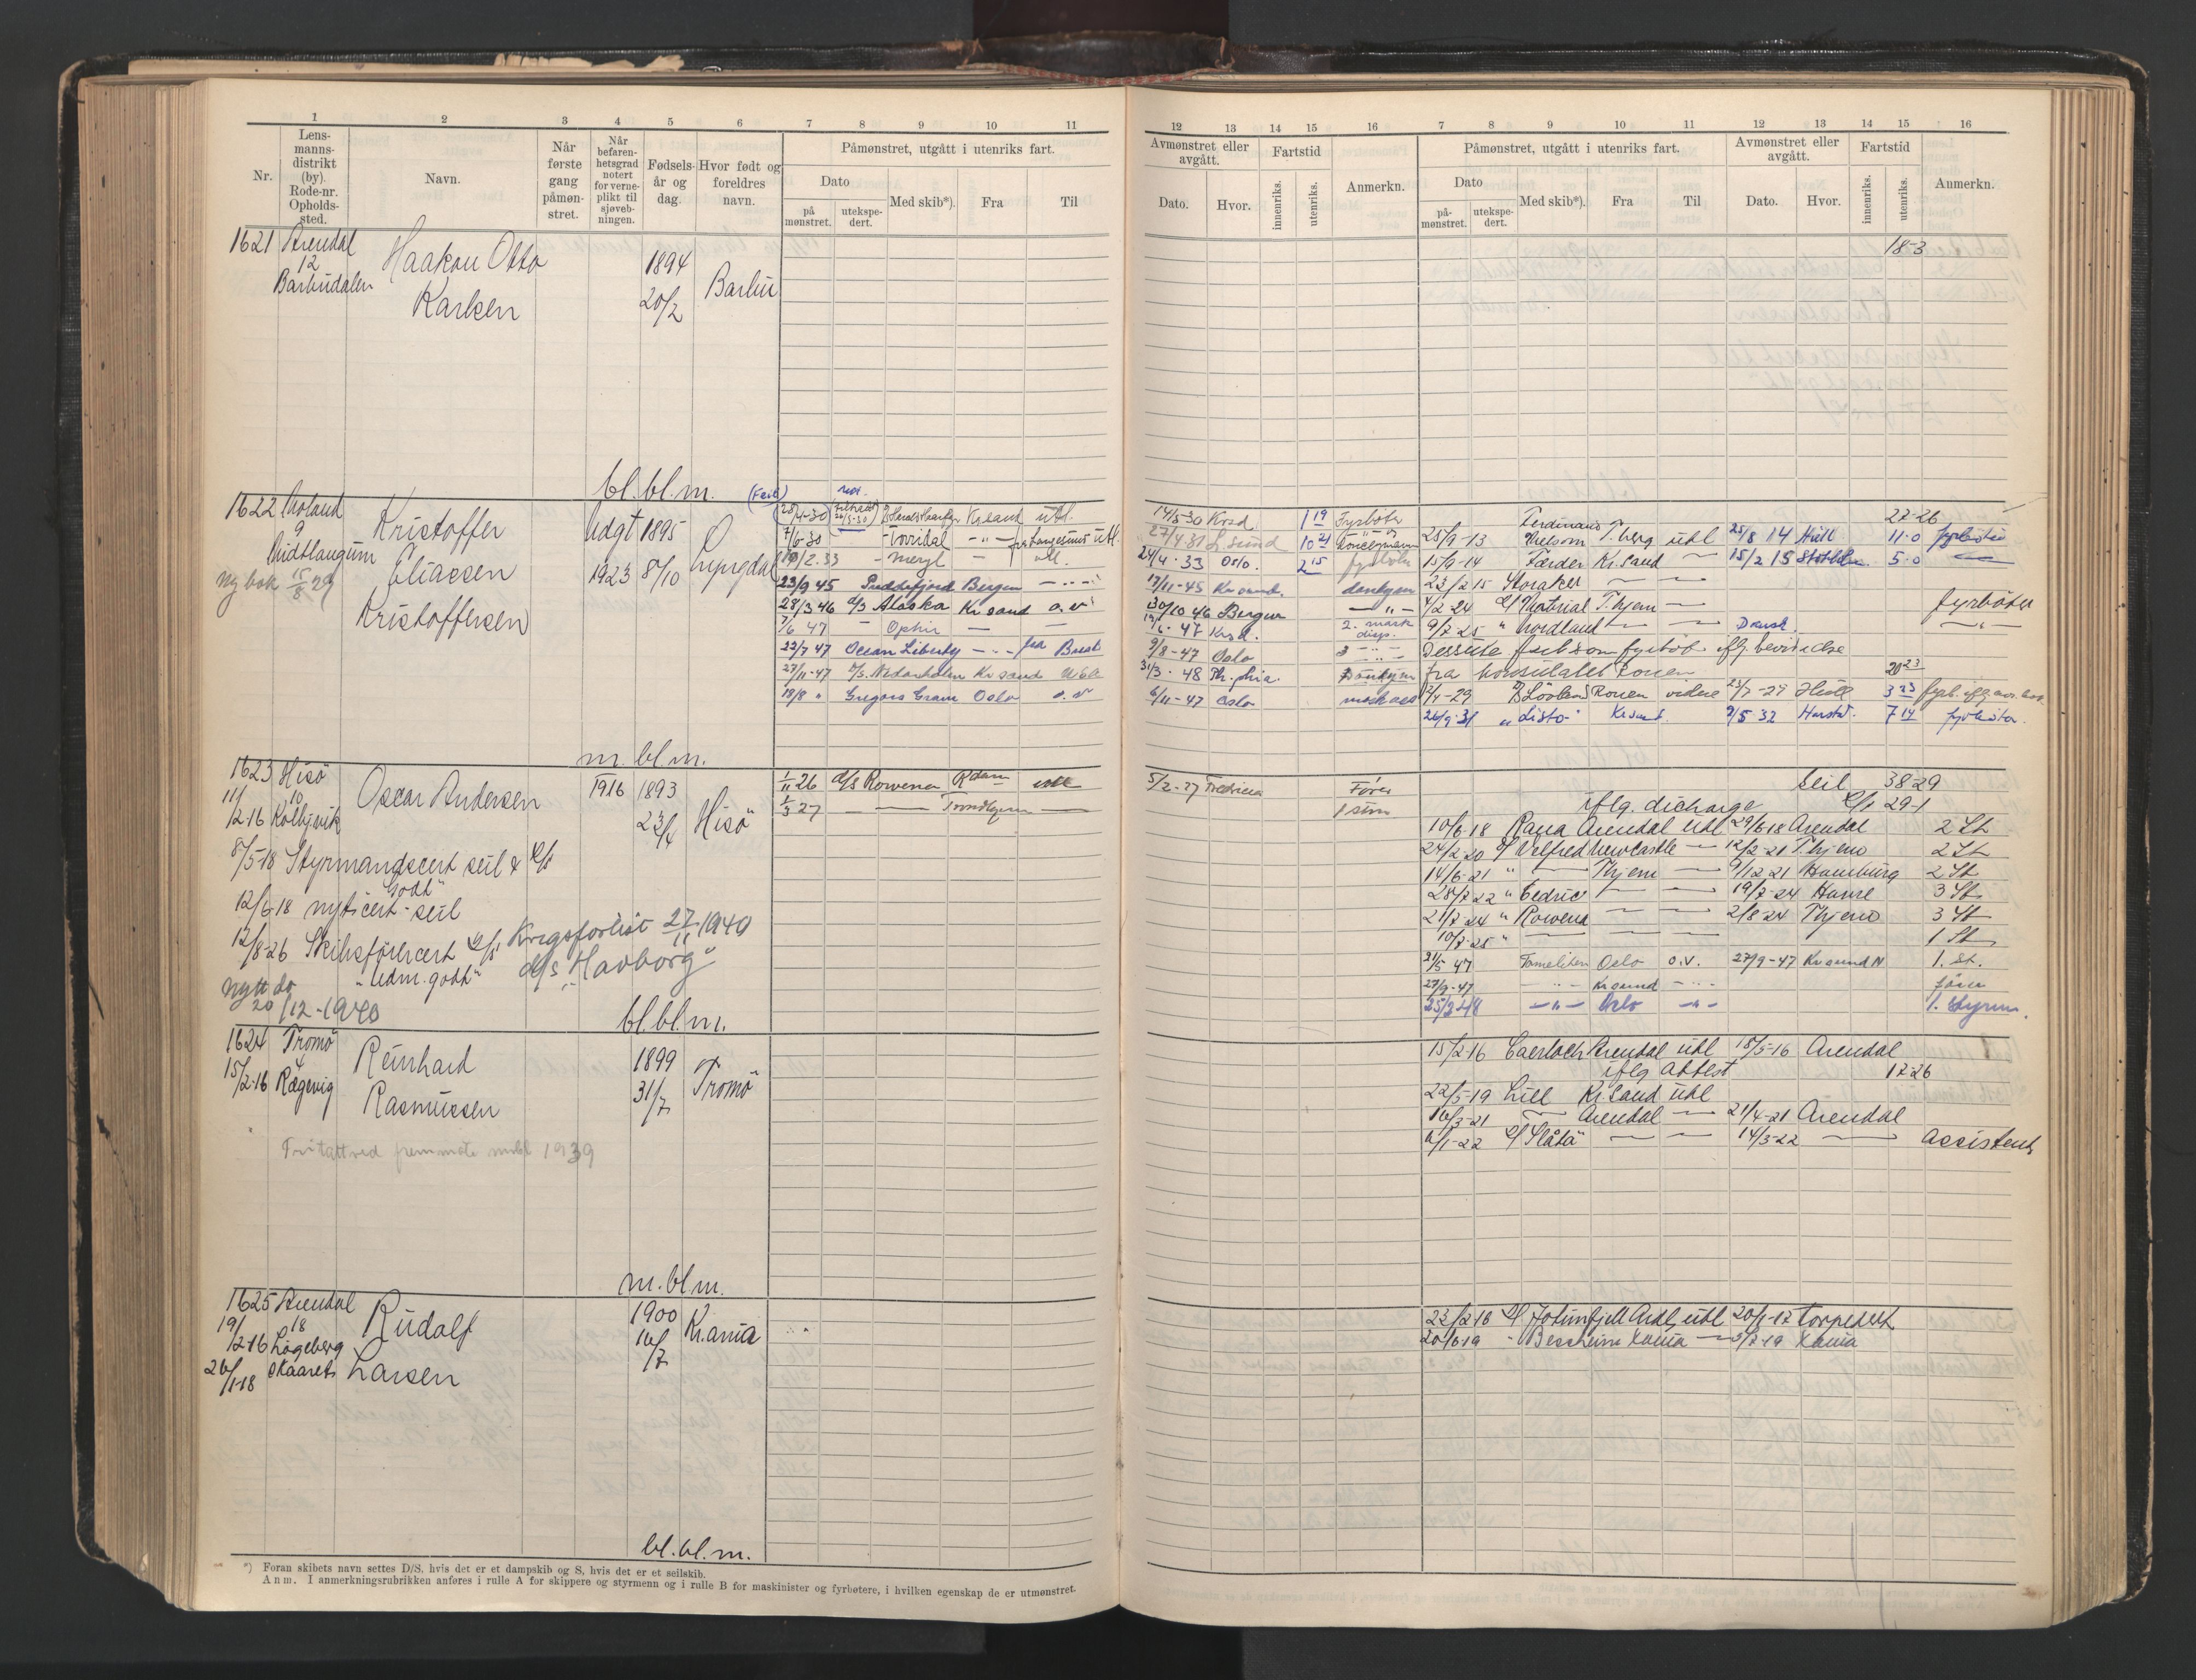 1 2 3 4 5 6 7 8 9 10 11
Nr.
Lens-
manns-
distrikt
(by).
Rode-nr.
Opholds-
sted.
Navn.
Når
første
gang
påmøn-
stret.
Når
befaren-
hetsgrad
notert
for verne-
plikt til
sjøveb-
ningen.
Fødsels-
år og
dag.
Hvor født og
foreldres
navn.
Påmønstret, utgått i utenriks fart.
Dato
på
mønstret.
utekspe-
dert.
Med skib*).
Fra
Til
12 13 14 15 16 7 8 9 10 11 12 13 14 15 16
Avmønstret eller
avgått.
Dato.
Hvor.
Fartstid
innenriks.
utenriks.
Anmerkn.
Påmønstret, utgått i utenriks fart.
Dato
på-
mønstret.
utekspe-
dert.
Med skib*).
Fra
Til
Avmønstret eller
avgått.
Dato.
Hvor.
Fartstid
innenriks.
utenriks.
Anmerkn.
1621 Arendal
12
Barbudalen
Haakon Otto
Karlsen
1894
20/2
Barbu
18-3
bl.bl.m.
1622
9
Ny bok 15/8 29
Kristoffer
Eliassen
Kristoffersen
Udgt
1923
1895
8/10
Lyngdal
7/6-30 Torridal
19/2.33 Meryl
23/9 45 Puddefjord Bergen
28/3 46 d/s Alaska Kr.sand o.v.
7/6 47 Ophir
22/7 47 Ocean Liberty fra Brest
27/11-47 Kr sand
18/8 Gregers Gram Oslo o.v
14/5-30 Krsd 1 19 Fyrbøter
27/4 31 L.sund 10 21
24/4.33 Oslo. 2 15 fyrbøter
17/11-45 Kr sand. donkym
30/10 46 Bergen
47 Krsd. 2. mask
disp.
9/8-47 Oslo 3
31/3.48 Donkym
6/11-47 Oslo mask ass
22-26
Ferdinand
25/9-13 Melsom T.berg utl 25/8 14 Hull 11-0 fyrbøter
15/9-14 Færder Kr.sand 15/2 15 5-0
23/2 15 Storaker
4/2-24 T.hjem fyrbøter
9/7-25 Nordland
Dessute
fra konsulatet Rouen
2/4-29 Rouen videre 23/7-29 Hull 3 23
26/9-31 "Lista" Kr.sand. 9/5 32 Harstad. 7 14 fyrbøter.
m.bl.m.
1623 Hisö
11/
2-16
10
Kolbjvik
Oscar Andersen
1916
1893
23/4
Hisö
1/11 26 d/s Rowena Rdam utl
1/3 27 Trondhjem
5/2-27 Fredricia Fører
1 stm
8/5-18 Styrmandscert seil & d/s
"Godt"
12/6-18 nyt cert - seil
12/8-26 Skibsförercert d/s
"Udm. godt"
Nytt do
20/12-1940
Krigsforlist 27/11 1940
d/s "Havborg"
Seil 38-29
iflg. dicharge d/s 29-1
10/6-18 Rana Arendal utl 29/6-18 Arendal 2 St
24/2-20 d/ Velfred Newcastle 12/2-21 T.hjem 2 St
14/6-21 " T.hjem 9/12 21 Hamburg 2 St
28/7-22 " Cedric 19/7-24 Havre 3 St
21/7-24 " Rowena 2/8-24 T.hjem 3 St
10/7-25 " 1 St
21/5 47 Oslo o.v. 27/9-47 Kr sund N 1. st.
27/9-47 Kr sund fører
25/2 48 Oslo 1. Styrm.
bl.bl.m.
1624 Tromö
15/2-16
4
Rægevig
Reinhard
Rasmussen
1899
31/7
Tromö
Fritatt ved fremmøte mobl 1939
15/2-16 Caerloch Arendal utl 18/5-16 Arendal
iflg attest 17-26
22/5-19 Lill Kr.sand utl
16/3-21 Arendal 21/4-21 Arendal
6/1-22 14/3-22 Assistent
m.bl.m.
1625 Arendal
19/
2-16
18
Lögeberg
26/1-18 skaaret
Rudolf
Larsen
1900
16/7
Kr.ania
23/2-16 d/ Jotunfjell Ardl utl 20/1-17 torpedert
20/6-19 - Bessheim Kania 3/7-19 Kania
bl.bl.m.
*) Foran skibets navn settes D/S, hvis det er et dampskib og S, hvis det er et seilskib.
Anm. I anmerkningsrubrikken anføres i rulle A for skippere og styrmenn og i rulle B for maskinister og fyrbøtere, i hvilken egenskap de er utmønstret.